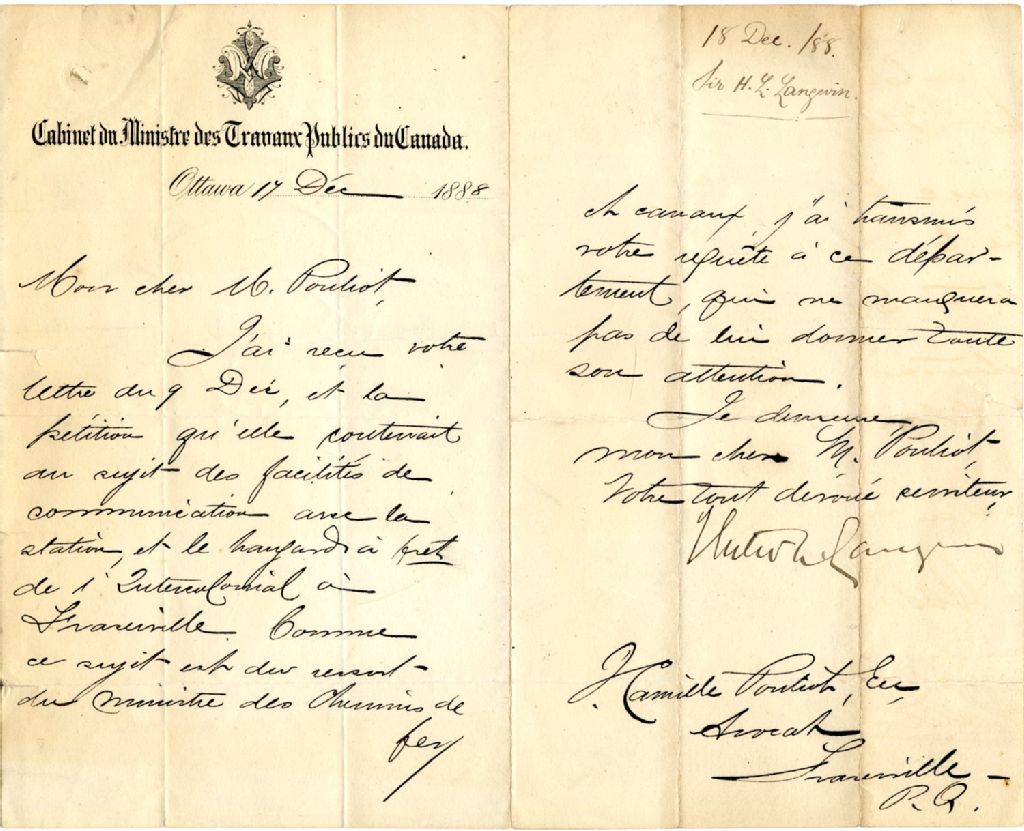 Cabinet du Ministre des Travaux Publics du Canada.
Ottawa 17 Déc 1888
Mon cher M. Pouliot,
J'ai reçu votre
lettre du 9 Déc, et la
pétition qu'elle contenait
au sujet des facilités de
communication avec la
station, et le hangard à fret
de l'Intercolonial à
Fraserville. Comme
ce sujet est du ressort
du ministre des Chemins de
fer
18 Dec. /88.
Sir H. L. Langevin.
et canaux, j'ai transmis
votre requête à ce dépar-
tement, qui ne manquera
pas de lui donner toute
son attention.
Je demeure
mon cher M. Pouliot,
Votre tout dévoué serviteur,
Hector L. Langevin
J. Camille Pouliot, Ecr,
Avocat,
Fraserville -
P. Q.